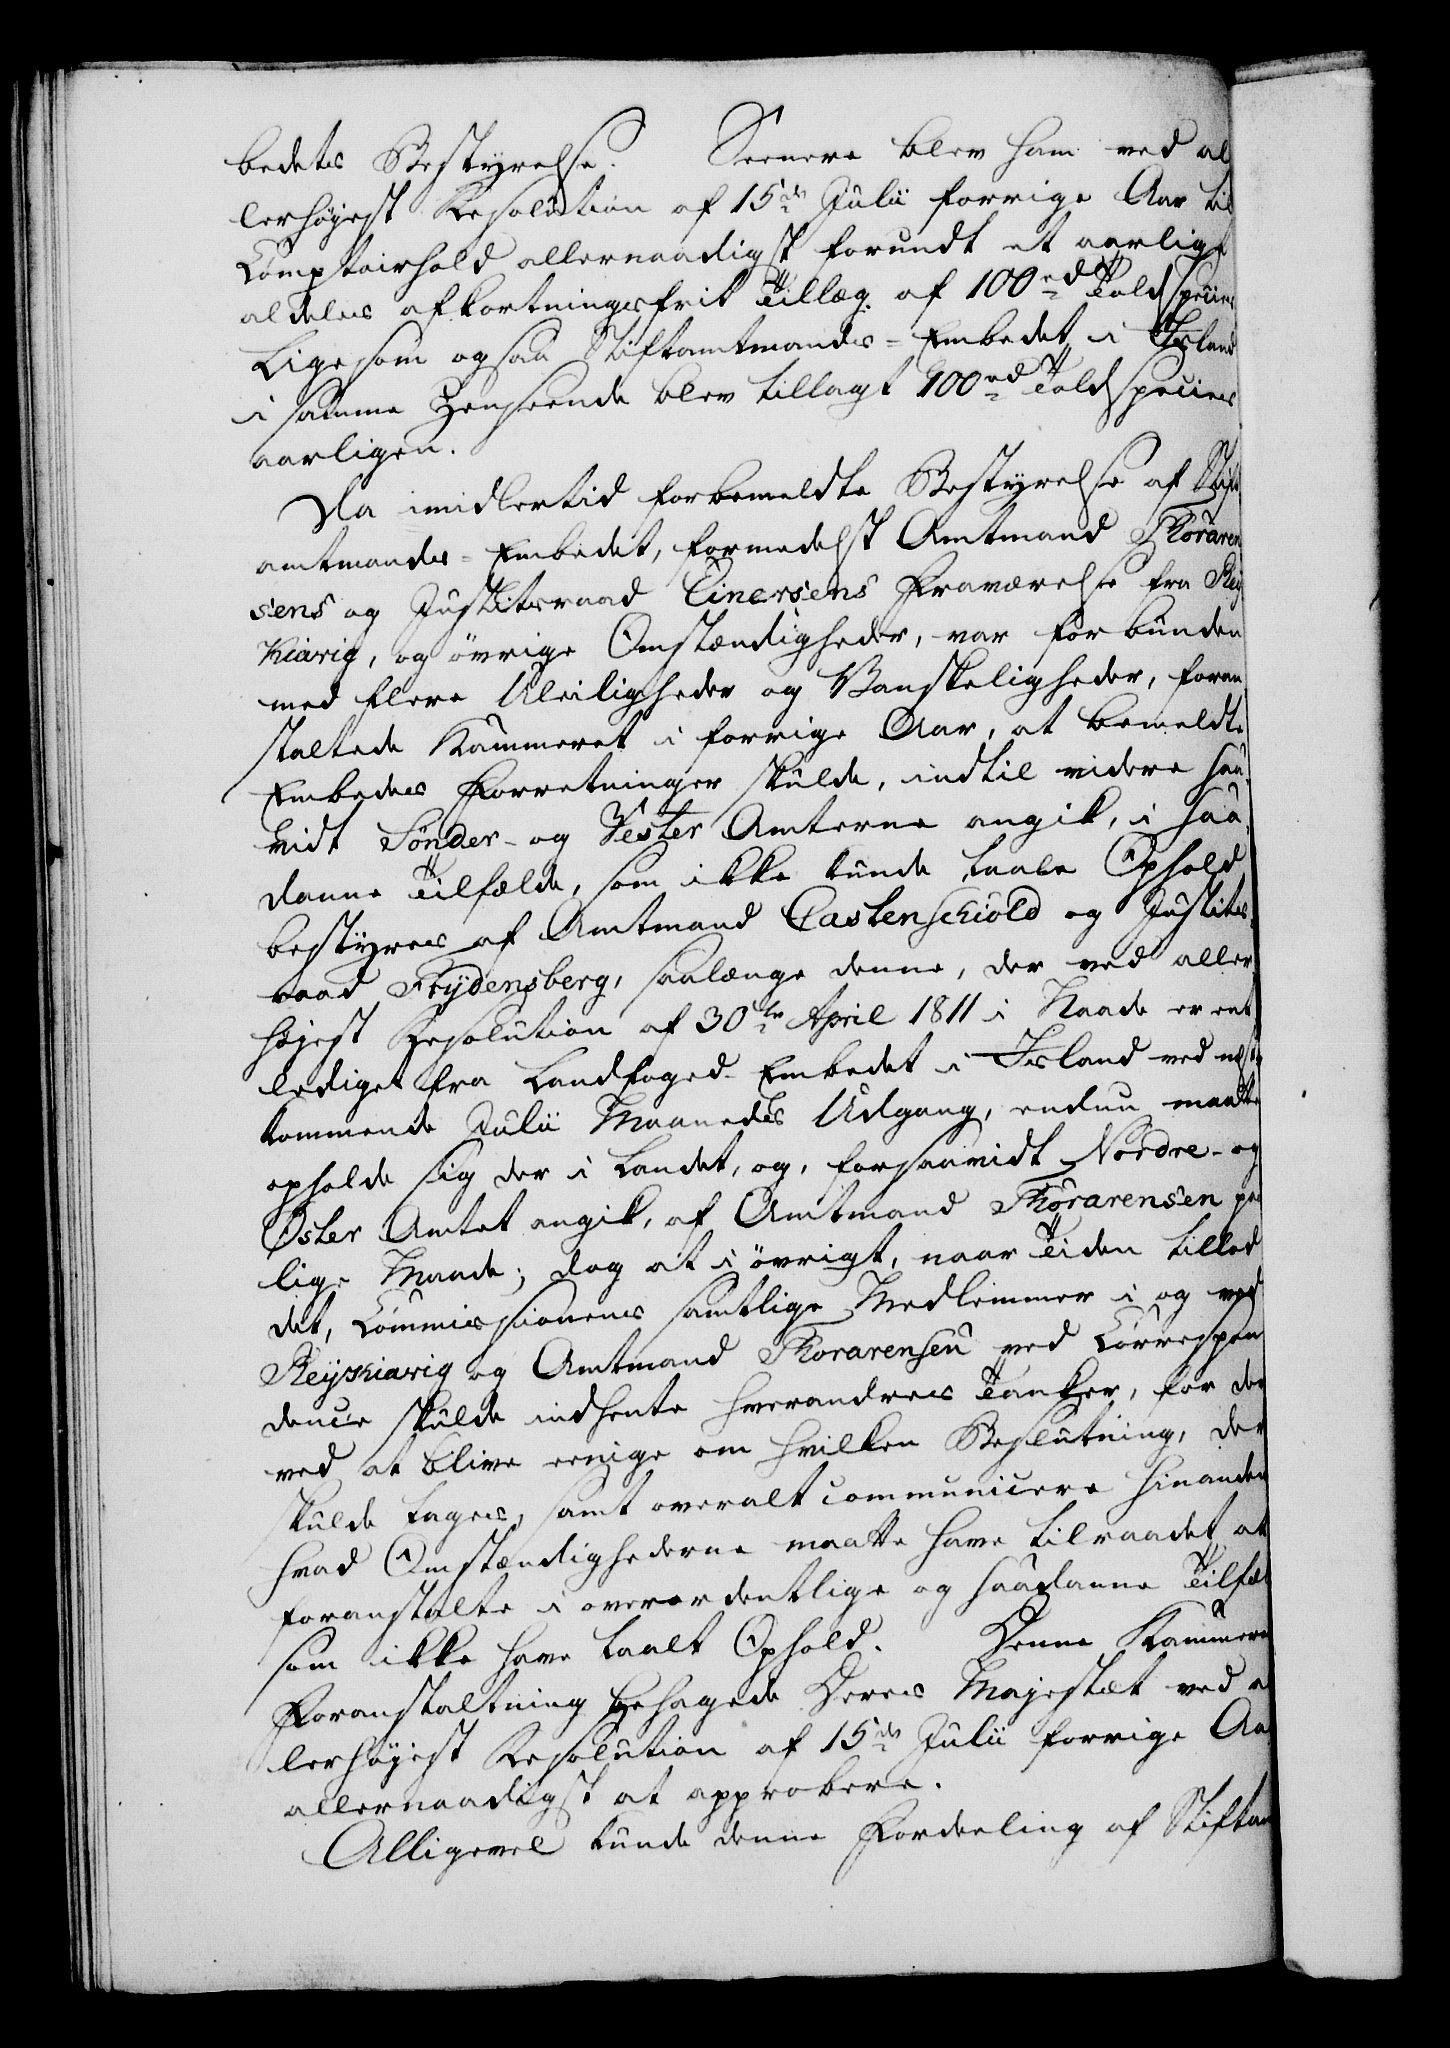 bedets Bestyrelse. Seenere blev ham ved al
lerhøyest Resolution af 15de Julii forrige Aar til
Comptoirhold allernaadigst forundt et aarligt
aldeles afkortningsfrit Tillæg af 100 rd Told species
Ligesom ogsaa Stiftamtmands-Embedet i Island
i samme Henseende blev tillagt 100 rd Told species
aarligen.
Da imidlertid forbemeldte Bestyrelse af Stift
amtmands-Embedet, formedelst Amtmand Thoraren
sens og Justitsraad Einersens Fraværelse fra Rey
kiavig, og øvrige Omstændigheder, var forbunden
med flere Uleiligheder og Vanskeligheder, foran
staltede Kammeret i forrige Aar, at bemeldte
Embedes Forretninger skulde, indtil videre saa
vidt Sønder- og Vester Amterne angik, i saa
danne Tilfælde, som ikke kunde taale Ophold
bestyres af Amtmand Castenschiold og Justits
raad Frydensberg, saalænge denne, der ved aller
højest Resolution af 30te April 1811 i Naade er ent
lediget fra Landfoged-Embedet i Island ved næst
kommende Julii Maaneds Udgang, endnu maatte
opholde sig der i Landet, og, forsaavidt Nordre- og
Øster Amtet angik, af Amtmand Thorarensen paa
lige Maade; dog at i øvrigt, naar Tiden tillod
det, Commissionens samtlige Medlemmer i og ved
Reykiavig og Amtmand Thorarensen ved Correspon
dence skulde indhente hverandres Tanker, for der
ved at blive eenige om hvilken Beslutning, der
skulde tages, samt overalt communicere hinanden
hvad Omstændighederne maatte have tilraadet at
foranstalte i overordentlige og saadanne Tilfæl
som ikke have taalt Ophold. Denne Kammere
Foranstaltning behagede Deres Majestæt ved a
lerhøyest Resolution af 15de Julii forrige Aa
allernaadigst at approbere.
Alligevel kunde denne Fordeeling af Stiftam